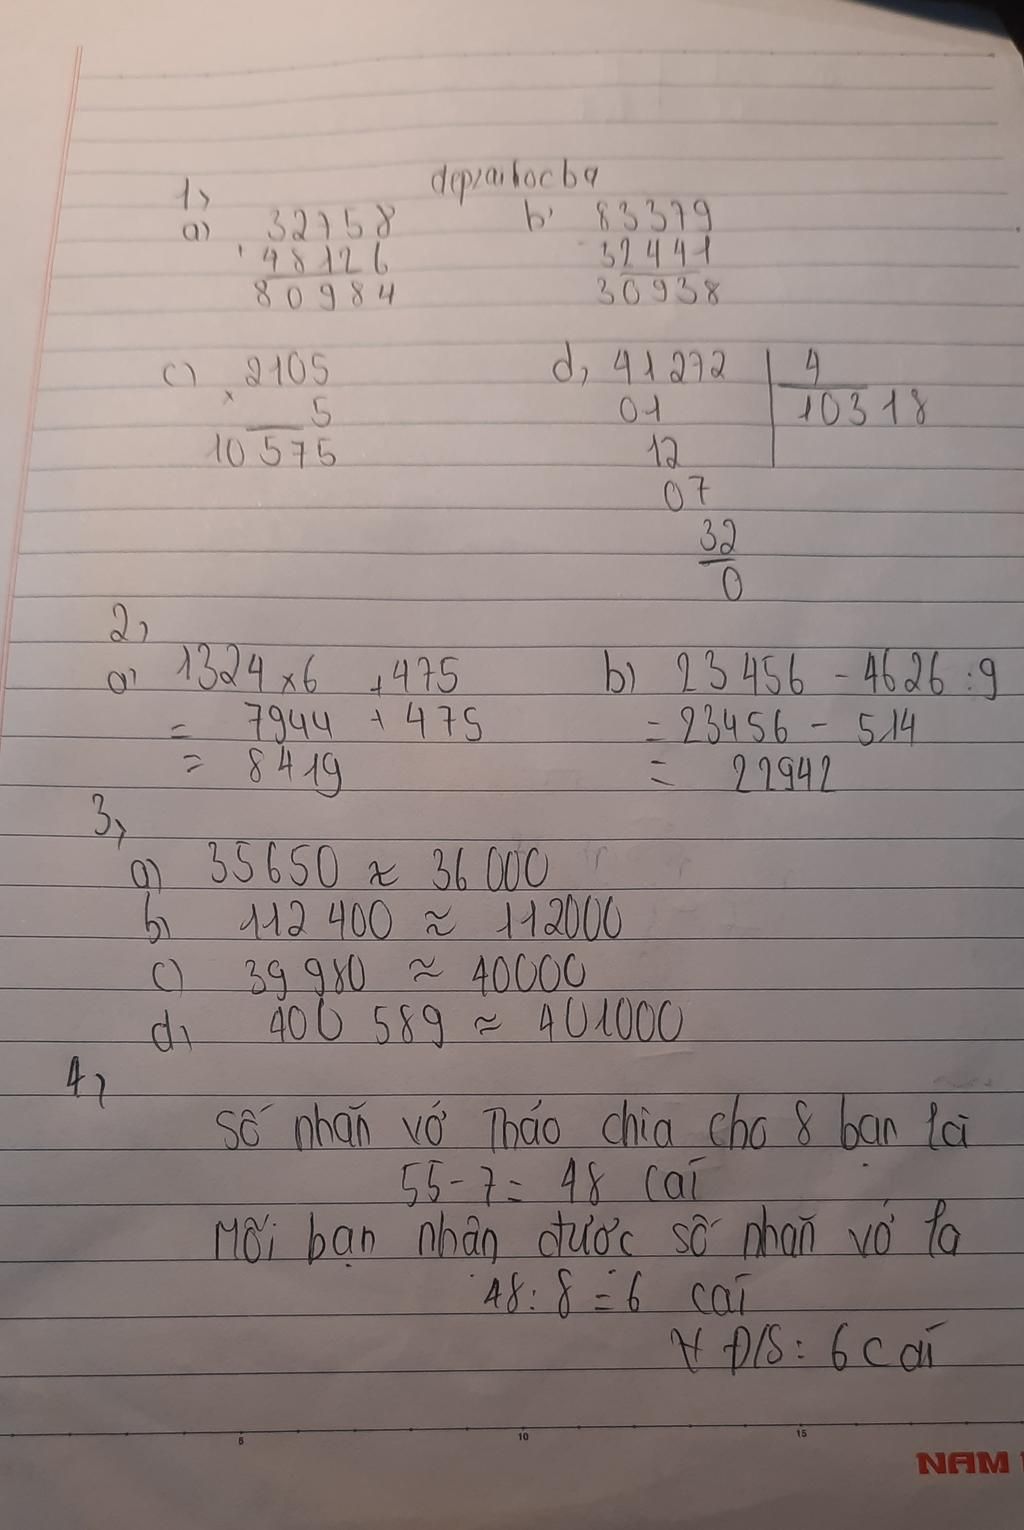 depzaihocba
1,
a) 32758 b, 83379
48126 32441
80984 30938
c) 2105 d, 41272 4
x 5 01 10318
10575 12
07
32
0
2,
a, 1324 x 6 + 475 b) 23 456 - 4626 : 9
= 7944 + 475 = 23456 - 514
= 8419 = 22942
3,
a) 35650 ≈ 36 000
b) 112 400 ≈ 112000
c) 39 980 ≈ 40000
d) 400 589 ≈ 401000
4,
Số nhãn vở Thảo chia cho 8 bạn là
55 - 7 = 48 cái
Mỗi bạn nhận được số nhãn vở là
48 : 8 = 6 cái
Đ/S : 6 cái
5 10 15
NAM